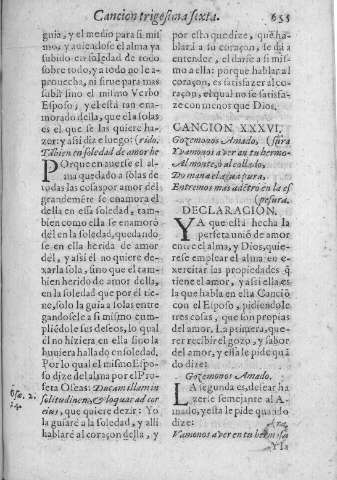 Cancion trigesima sexta. 655
guia, y el medio para si mis
mo, y auiendose el alma ya
subido en soledad de todo
sobre todo, ya todo no le a-
prouecha, ni sirue para mas
subir sino el mismo Verbo
Esposo, y el està tan ena-
morado della, que el a solas
es el que se las quiere ha-
zer: y assi dize luego: (rido.
Tābien en soledad de amor he
POrque en auerse el al-
ma quedado a solas de
todas las cosas por amor del
grandemēte se enamora el
della en essa soledad, tam-
bien como ella se enamorò
del en la soledad, quedando-
se en ella herida de amor
del, y assi el no quiere de-
xarla sola, sino que el tam-
bien herido de amor della,
en la soledad que por el tie-
ne, solo la guia a solas entre
gandosele a si mismo cum-
pliēdole sus deseos, lo qual
el no hiziera en ella sino la
huuiera hallado en soledad.
Por lo qual el mismo Espo-
so dize del alma por el Pro-
feta Oseas: Ducam illam in
solitudinem, & loquar ad cor
eius, que quiere dezir: Yo
la guiarè a la soledad, y alli
hablarè al coraçon della, y
Ose. 2.
14.
por esto que dize, que ha-
blarà a su coraçon, se dà a
entender, el darse a si mis-
mo a ella: porque hablar al
coraçon, es satisfazer al co-
raçon, el qual no se satisfa-
ze con menos que Dios.
CANCION XXXVI.
Gozemonos Amado, (sura
Y vamonos a ver en tu hermo-
Al monte, ò al collado,
Do mana el agua pura,
Entremos mas adētro en la es
(pesura.
DECLARACION.
YA que està hecha la
perfecta uniō de amor
entre el alma, y Dios, quie-
rese emplear el alma en e-
xercitar las propiedades q̄
tiene el amor, y assi ella es
la que habla en esta Canciō
con el Esposo, pidiendole
tres cosas, que son propias
del amor. La primera, que-
rer recibir el gozo, y sabor
del amor, y essa le pide quā
do dize:
Gozemonos Amado.
LA segunda es, desear ha
zerse semejante al A-
mado, y esta le pide quādo
dize:
Vamonos a ver en tu hermosu
Y la